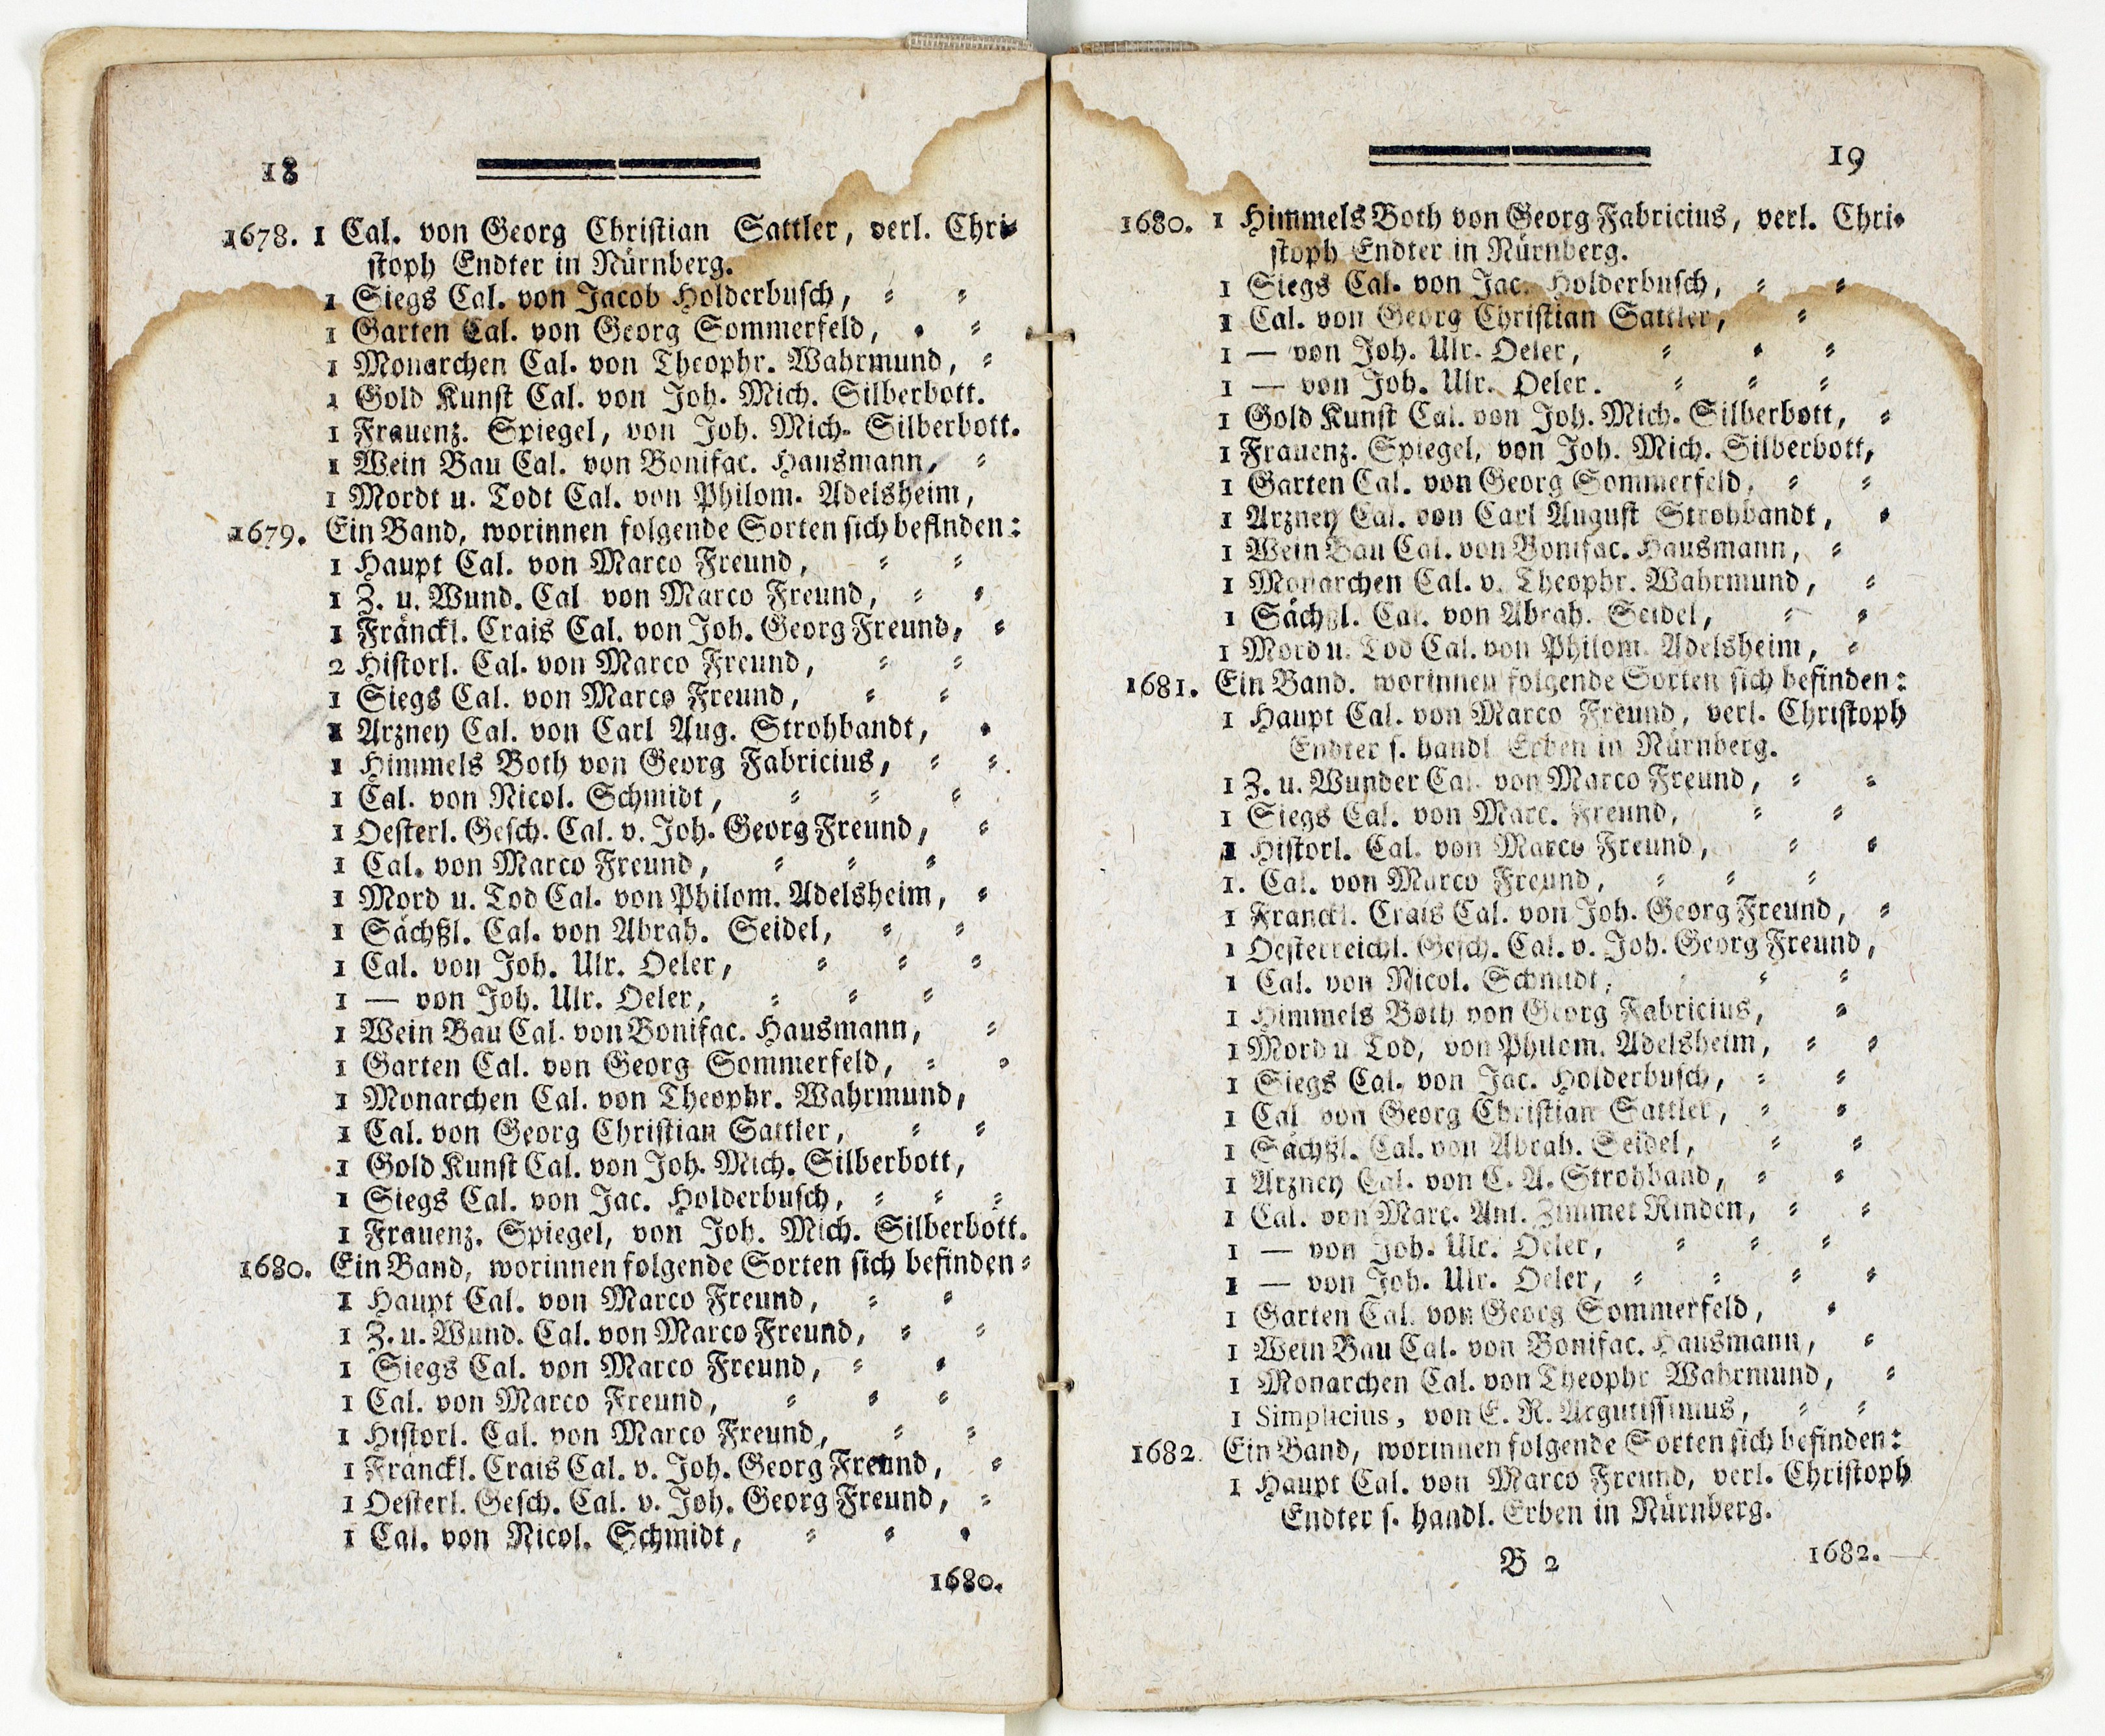 18
1678. 1 Cal. von Georg Christian Sattler, verl. Chri⸗
stoph Endter in Nürnberg.
1 Siegs Cal. von Jacob Holderbusch, ⸗ ⸗
1 Garten Cal. von Georg Sommerfeld, ⸗ ⸗
1 Monarchen Cal. von Theophr. Wahrmund, ⸗
1 Gold Kunst Cal. von Joh. Mich. Silberbott.
1 Frauenz. Spiegel, von Joh. Mich. Silberbott.
1 Wein Bau Cal. von Bonifac. Hausmann, ⸗
1 Mordt u. Todt Cal. von Philom. Adelsheim,
1679. Ein Band, worinnen folgende Sorten sich befinden:
1 Haupt Cal. von Marco Freund, ⸗ ⸗
1 Z. u. Wund. Cal von Marco Freund, ⸗ ⸗
1 Fränckl. Crais Cal. von Joh. Georg Freund, ⸗
2 Historl. Cal. von Marco Freund, ⸗ ⸗
1 Siegs Cal. von Marco Freund, ⸗ ⸗
1 Arzney Cal. von Carl Aug. Strohbandt, ⸗
1 Himmels Both von Georg Fabricius, ⸗ ⸗.
1 Cal. von Nicol. Schmidt, ⸗ ⸗ ⸗
1 Oesterl. Gesch. Cal. v. Joh. Georg Freund, ⸗
1 Cal. von Marco Freund, ⸗ ⸗ ⸗
1 Mord u. Tod Cal. von Philom. Adelsheim, ⸗
1 Sächßl. Cal. von Abrah. Seidel, ⸗ ⸗
1 Cal. von Joh. Ulr. Oeler, ⸗ ⸗ ⸗
1 — von Joh. Ulr. Oeler, ⸗ ⸗ ⸗
1 Wein Bau Cal. von Bonifac. Hausmann, ⸗
1 Garten Cal. von Georg Sommerfeld, ⸗ ⸗
1 Monarchen Cal. von Theophr. Wahrmund,
1 Cal. von Georg Christian Sattler, ⸗ ⸗
1 Gold Kunst Cal. von Joh. Mich. Silberbott,
1 Siegs Cal. von Jac. Holderbusch, ⸗ ⸗ ⸗
1 Frauenz. Spiegel, von Joh. Mich. Silberbott.
1680. Ein Band, worinnen folgende Sorten sich befinden⸗
1 Haupt Cal. von Marco Freund, ⸗ ⸗
1 Z. u. Wund. Cal. von Marco Freund, ⸗ ⸗
1 Siegs Cal. von Marco Freund, ⸗ ⸗
1 Cal. von Marco Freund, ⸗ ⸗ ⸗
1 Historl. Cal. von Marco Freund, ⸗ ⸗
1 Franckl. Crais Cal. v. Joh. Georg Freund, ⸗
1 Oesterl. Gesch. Cal. v. Joh. Georg Freund, ⸗
1 Cal. von Nicol. Schmidt, ⸗ ⸗ ⸗
1680.
19
1680. 1 Himmels Both von Georg Fabricius, verl. Chri⸗
stoph Endter in Nürnberg.
1 Siegs Cal. von Jac. Holderbusch, ⸗ ⸗
1 Cal. von Georg Christian Sattler, ⸗
1 — von Joh. Ulr. Oeler, ⸗ ⸗ ⸗
1 — von Joh. Ulr. Oeler. ⸗ ⸗ ⸗
1 Gold Kunst Cal. von Joh. Mich. Silberbott, ⸗
1 Frauenz. Spiegel, von Joh. Mich. Silberbott,
1 Garten Cal. von Georg Sommerfeld, ⸗ ⸗
1 Arzney Cal. von Carl August Strohbandt, ⸗
1 Wein Bau Cal. von Bonifac. Hausmann, ⸗
1 Monarchen Cal. v. Theophr. Wahrmund, ⸗
1 Sächßl. Cal. von Abrah. Seidel, ⸗ ⸗
1 Mord u. Tod Cal. von Philom. Adelsheim, ⸗
1681. Ein Band. worinnen folgende Sorten sich befinden:
1 Haupt Cal. von Marco Freund, verl. Christoph
Endter s. handl Erben in Nürnberg.
1 Z. u. Wunder Cal. von Marco Freund, ⸗ ⸗
1 Siegs Cal. von Marc. Freund, ⸗ ⸗
1 Historl. Cal. von Marco Freund, ⸗ ⸗
1. Cal. von Marco Freund, ⸗ ⸗ ⸗
1 Franckl. Crais Cal. von Joh. Georg Freund, ⸗
1 Oesterreichl. Gesch. Cal. v. Joh. Georg Freund,
1 Cal. von Nicol. Schmidt, ⸗ ⸗ ⸗
1 Himmels Both von Georg Fabricius, ⸗
1 Mord u Tod, von Philom. Adelsheim, ⸗ ⸗
1 Siegs Cal. von Jac. Holderbusch, ⸗ ⸗
1 Cal von Georg Christian Sattler, ⸗ ⸗
1 Sächßl. Cal. von Abrah. Seidel, ⸗ ⸗
1 Arzney Cal. von C. A. Strohband, ⸗ ⸗
1 Cal. von Marc. Ant. Zimmet Rinden, ⸗ ⸗
1 — von Joh. Ulr. Oeler, ⸗ ⸗ ⸗
1 — von Joh. Ulr. Oeler, ⸗ ⸗ ⸗ ⸗
1 Garten Cal. von Georg Sommerfeld, ⸗
1 Wein Bau Cal. von Bonifac. Hausmann, ⸗
1 Monarchen Cal. von Theophr Wahrmund, ⸗
1 Simplicius, von E. R. Argutissimus, ⸗ ⸗
1682. Ein Band, worinnen folgende Sorten sich befinden:
1 Haupt Cal. von Marco Freund, verl. Christoph
Endter s. handl. Erben in Nürnberg.
B 2 1682.